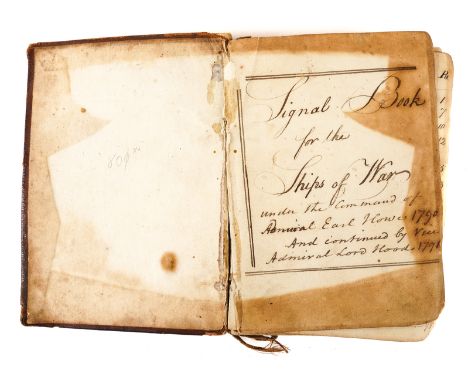 Signal Book
for the
Ships of War
under the Command of
Admiral Earl Howe 1790
And continued by Vice
Admiral Lord Hood 1791